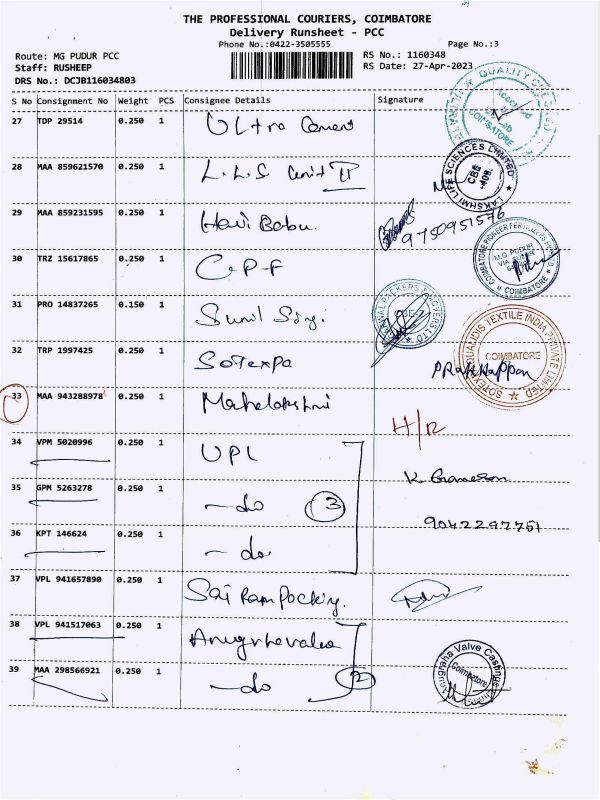 THE PROFESSIONAL COURIERS, COIMBATORE
Delivery Runsheet - PCC
Phone No.:0422-3505555
Page No.:3
Route: MG PUDUR PCC
RS No.: 1160348
Staff: RUSHEEP
RS Date: 27-Apr-2023
DRS No.: DCJB116034803
S No Consignment No Weight PCS Consignee Details Signature
27 TDP 29514 0.250 1
28 MAA 859621570 0.250 1 L.L.S Unit II
LAKSHMI LIFE SCIENCES LIMITED
CBE -408.
29 MAA 859231595 0.250 1 Hari Babu.
9750951576
30 TRZ 15617865 0.250 1 C.P.F
COIMBATORE PIONEER FERTILIZERS
M.G. PUDUR
COIMBATORE
31 PRO 14837265 0.150 1 Sunil
32 TRP 1997425 0.250 1 Sotexpa
SOTEXPA QUALIDIS TEXTILE INDIA PRIVATE LIMITED
COIMBATORE
33 MAA 943288978 0.250 1 Mahalakshmi H/R
34 VPM 5020996 0.250 1 UPL
35 GPM 5263278 0.250 1 - do 3
36 KPT 146624 0.250 1 - do
9042297751
37 VPL 941657890 0.250 1 Sai Ram Packing.
38 VPL 941517063 0.250 1
39 MAA 298566921 0.250 1 - do 2
Anugraha Valve Castings
Coimbatore